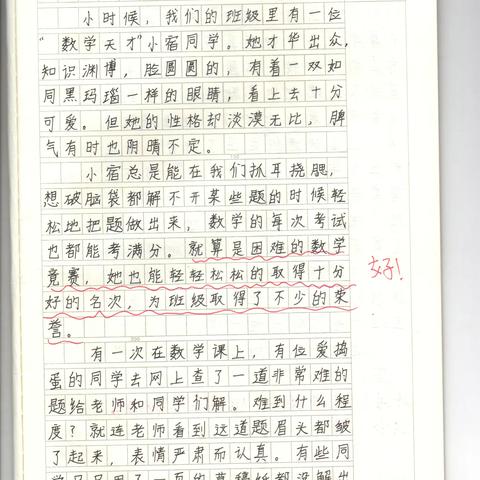 小时候，我们的班级里有一位
“数学天才”小宿同学。她才华出众，
知识渊博，脸圆圆的，有着一双如
同黑玛瑙一样的眼睛，看上去十分
可爱。但她的性格却淡漠无比，脾
气有时也阴晴不定。
小宿总是能在我们抓耳挠腮，
想破脑袋都解不开某些题的时候轻
松地把题做出来，数学的每次考试
也都能考满分。就算是困难的数学
竟赛，她也能轻轻松松的取得十分
好的名次，为班级取得了不少的荣
誉。
好！
有一次在数学课上，有位爱捣
蛋的同学去网上查了一道非常难的
题给老师和同学们解。难到什么程
度？就连老师看到这道题眉头都皱
了起来，表情严肃而认真。有些同
学只只用了一页的草稿纸都没解出